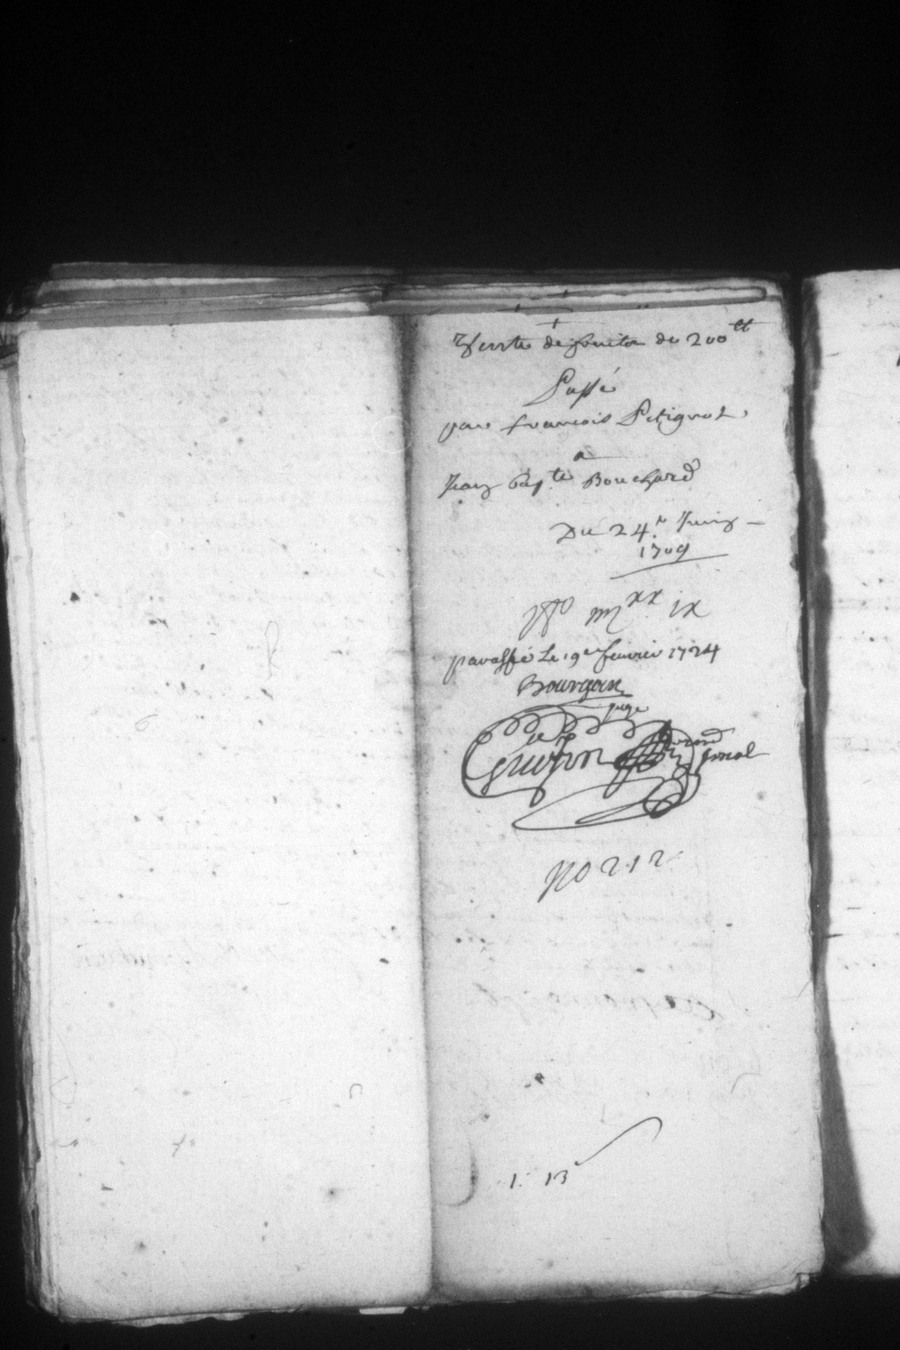 Vente de fonciere de 200tt
Passé
par francois Petignot
a
Jean bapte Bouchard
Du 24e Juin
1709
No iiijxx ix
paraffé Le 19e feuvrier 1724
Bourgoin
juge
guyon
No 212
1. 13